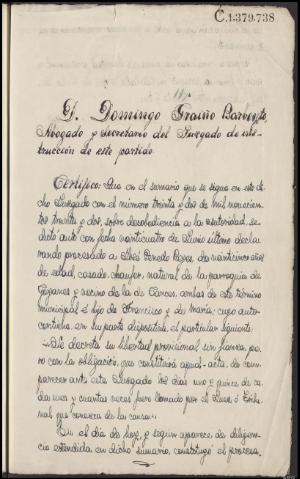 C.1.379.738
D. Domingo
Abogado y Secretario del Juzgado de ins-
trucción de este partido
Certifico: Que en el sumario que se sigue en este di-
cho Juzgado con el número treinta y dos de mil novecien-
tos treinta y dos, sobre desobediencia a la autoridad, se
dictó auto con fecha veinticuatro de Junio último decla-
rando procesado a José López, de veinticinco años
de edad, casado, chauffer, natural de la parroquia de
y vecino de la de ambas de este término
municipal e hijo de Francisco y de María; cuyo auto
contiene, en su parte dispositiva el particular siguiente:
Se decreta su libertad provisional sin fianza, pe-
ro con la obligación, que constituirá apud-acta, de com-
parecer ante este Juzgado los días uno y quince de ca-
da mes y cuantas veces fuere llamado por el Juez o Tribu-
nal que conozca de la causa
En el día de hoy, y según aparece de diligencia
extendida en dicho sumario, constituyó el procesa-